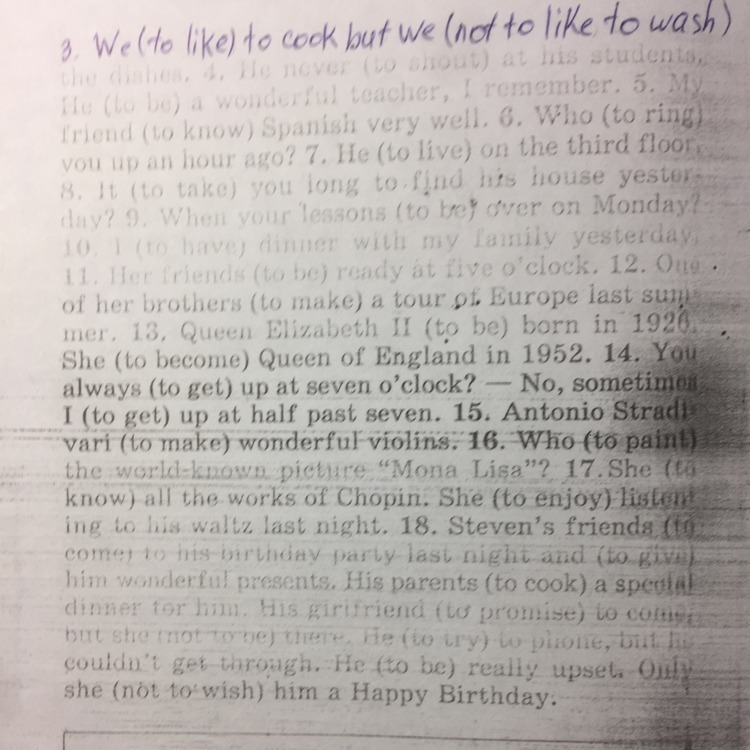 3. We (to like) to cook but we (not to like to wash)
the dishes. 4. He never (to shout) at his students,
He (to be) a wonderful teacher, I remember. 5. My
friend (to know) Spanish very well. 6. Who (to ring)
you up an hour ago? 7. He (to live) on the third floor.
8. It (to take) you long to find his house yester-
day? 9. When your lessons (to be) over on Monday?
10. I (to have) dinner with my family yesterday.
11. Her friends (to be) ready at five o'clock. 12. One
of her brothers (to make) a tour of Europe last sum-
mer. 13. Queen Elizabeth II (to be) born in 1926.
She (to become) Queen of England in 1952. 14. You
always (to get) up at seven o'clock? — No, sometimes
I (to get) up at half past seven. 15. Antonio Stradi-
vari (to make) wonderful violins. 16. Who (to paint)
the world-known picture "Mona Lisa"? 17. She (to
know) all the works of Chopin. She (to enjoy) listen-
ing to his waltz last night. 18. Steven's friends (to
come) to his birthday party last night and (to give)
him wonderful presents. His parents (to cook) a special
dinner for him. His girlfriend (to promise) to come,
but she (not to be) there. He (to try) to phone, but he
couldn't get through. He (to be) really upset. Only
she (not to wish) him a Happy Birthday.